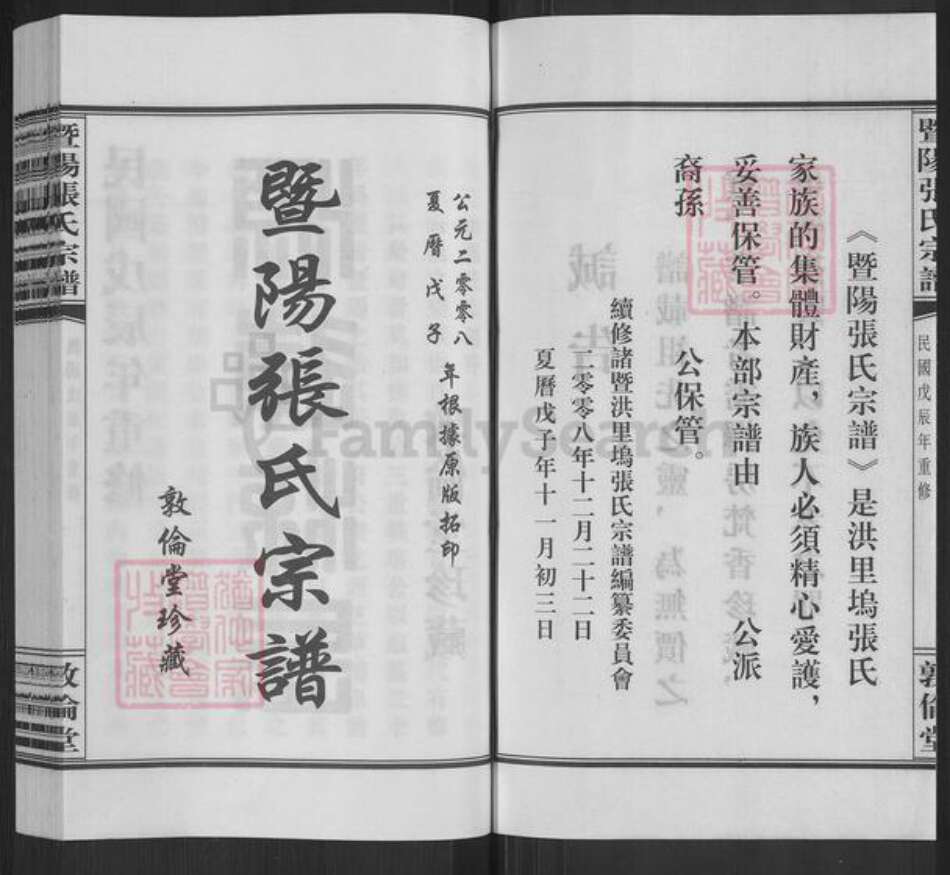 暨陽張氏宗譜
民國戊辰年重修
敦倫堂
《暨陽張氏宗譜》是洪里塢張氏
家族的集體財產，族人必須精心愛護，
妥善保管。本部宗譜由　　公派
裔孫　　公保管。
續修諸暨洪里塢張氏宗譜編纂委員會
二零零八年十二月二十二日
夏曆戊子年十一月初三日
公元二零零八
夏曆戊子
年根據原版拓印
暨陽張氏宗譜
敦倫堂珍藏
暨陽張氏宗譜
敦倫堂
FamilySearch